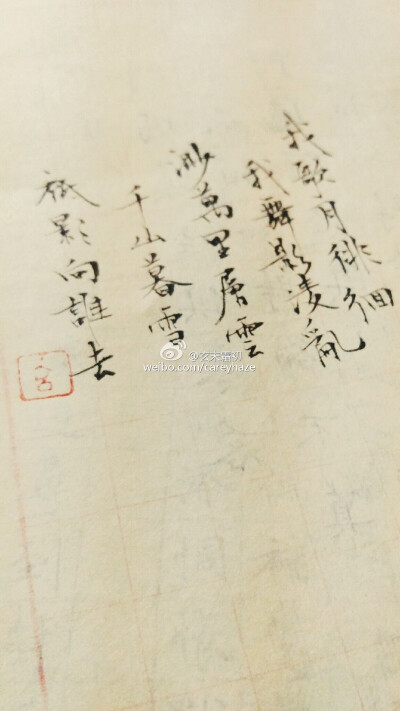 我歌月徘徊
我舞影凌亂
渺萬里層雲
千山暮雪
祇影向誰去
weibo.com/careyhaze